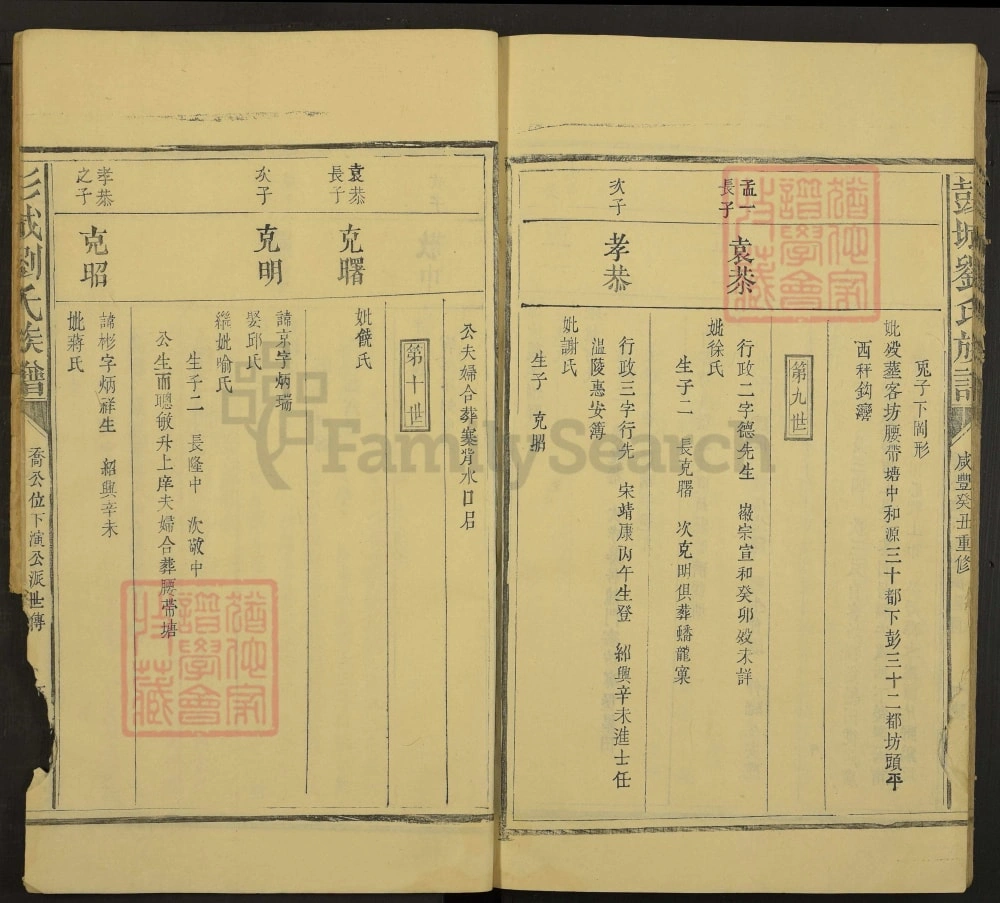 彭城劉氏族譜
咸豐癸丑重修
兎子下岡形
妣歿葬客坊腰帶塘中和源三十都下彭三十二都坊頭平
西秤鈎灣
第九世
孟一
長子
袁恭
行政二字德先生 徽宗宣和癸卯歿未詳
妣徐氏
生子二 長克曙 次克明俱葬蟠龍窠
次子
孝恭
行政三字行先 宋靖康丙午生登 紹興辛未進士任
溫陵惠安簿
妣謝氏
生子 克昭
公夫婦合葬寨背水口君
第十世
袁恭
長子
克曙
妣饒氏
次子
克明
諱京字炳瑞
娶邱氏
繼妣喻氏
生子二 長隆中 次敬中
公生而聰敏升上庠夫婦合葬腰帶塘
孝恭
之子
克昭
諱彬字炳祥生 紹興辛未
妣蔣氏
彭城劉氏族譜
喬公位下演公派世傳
FamilySearch